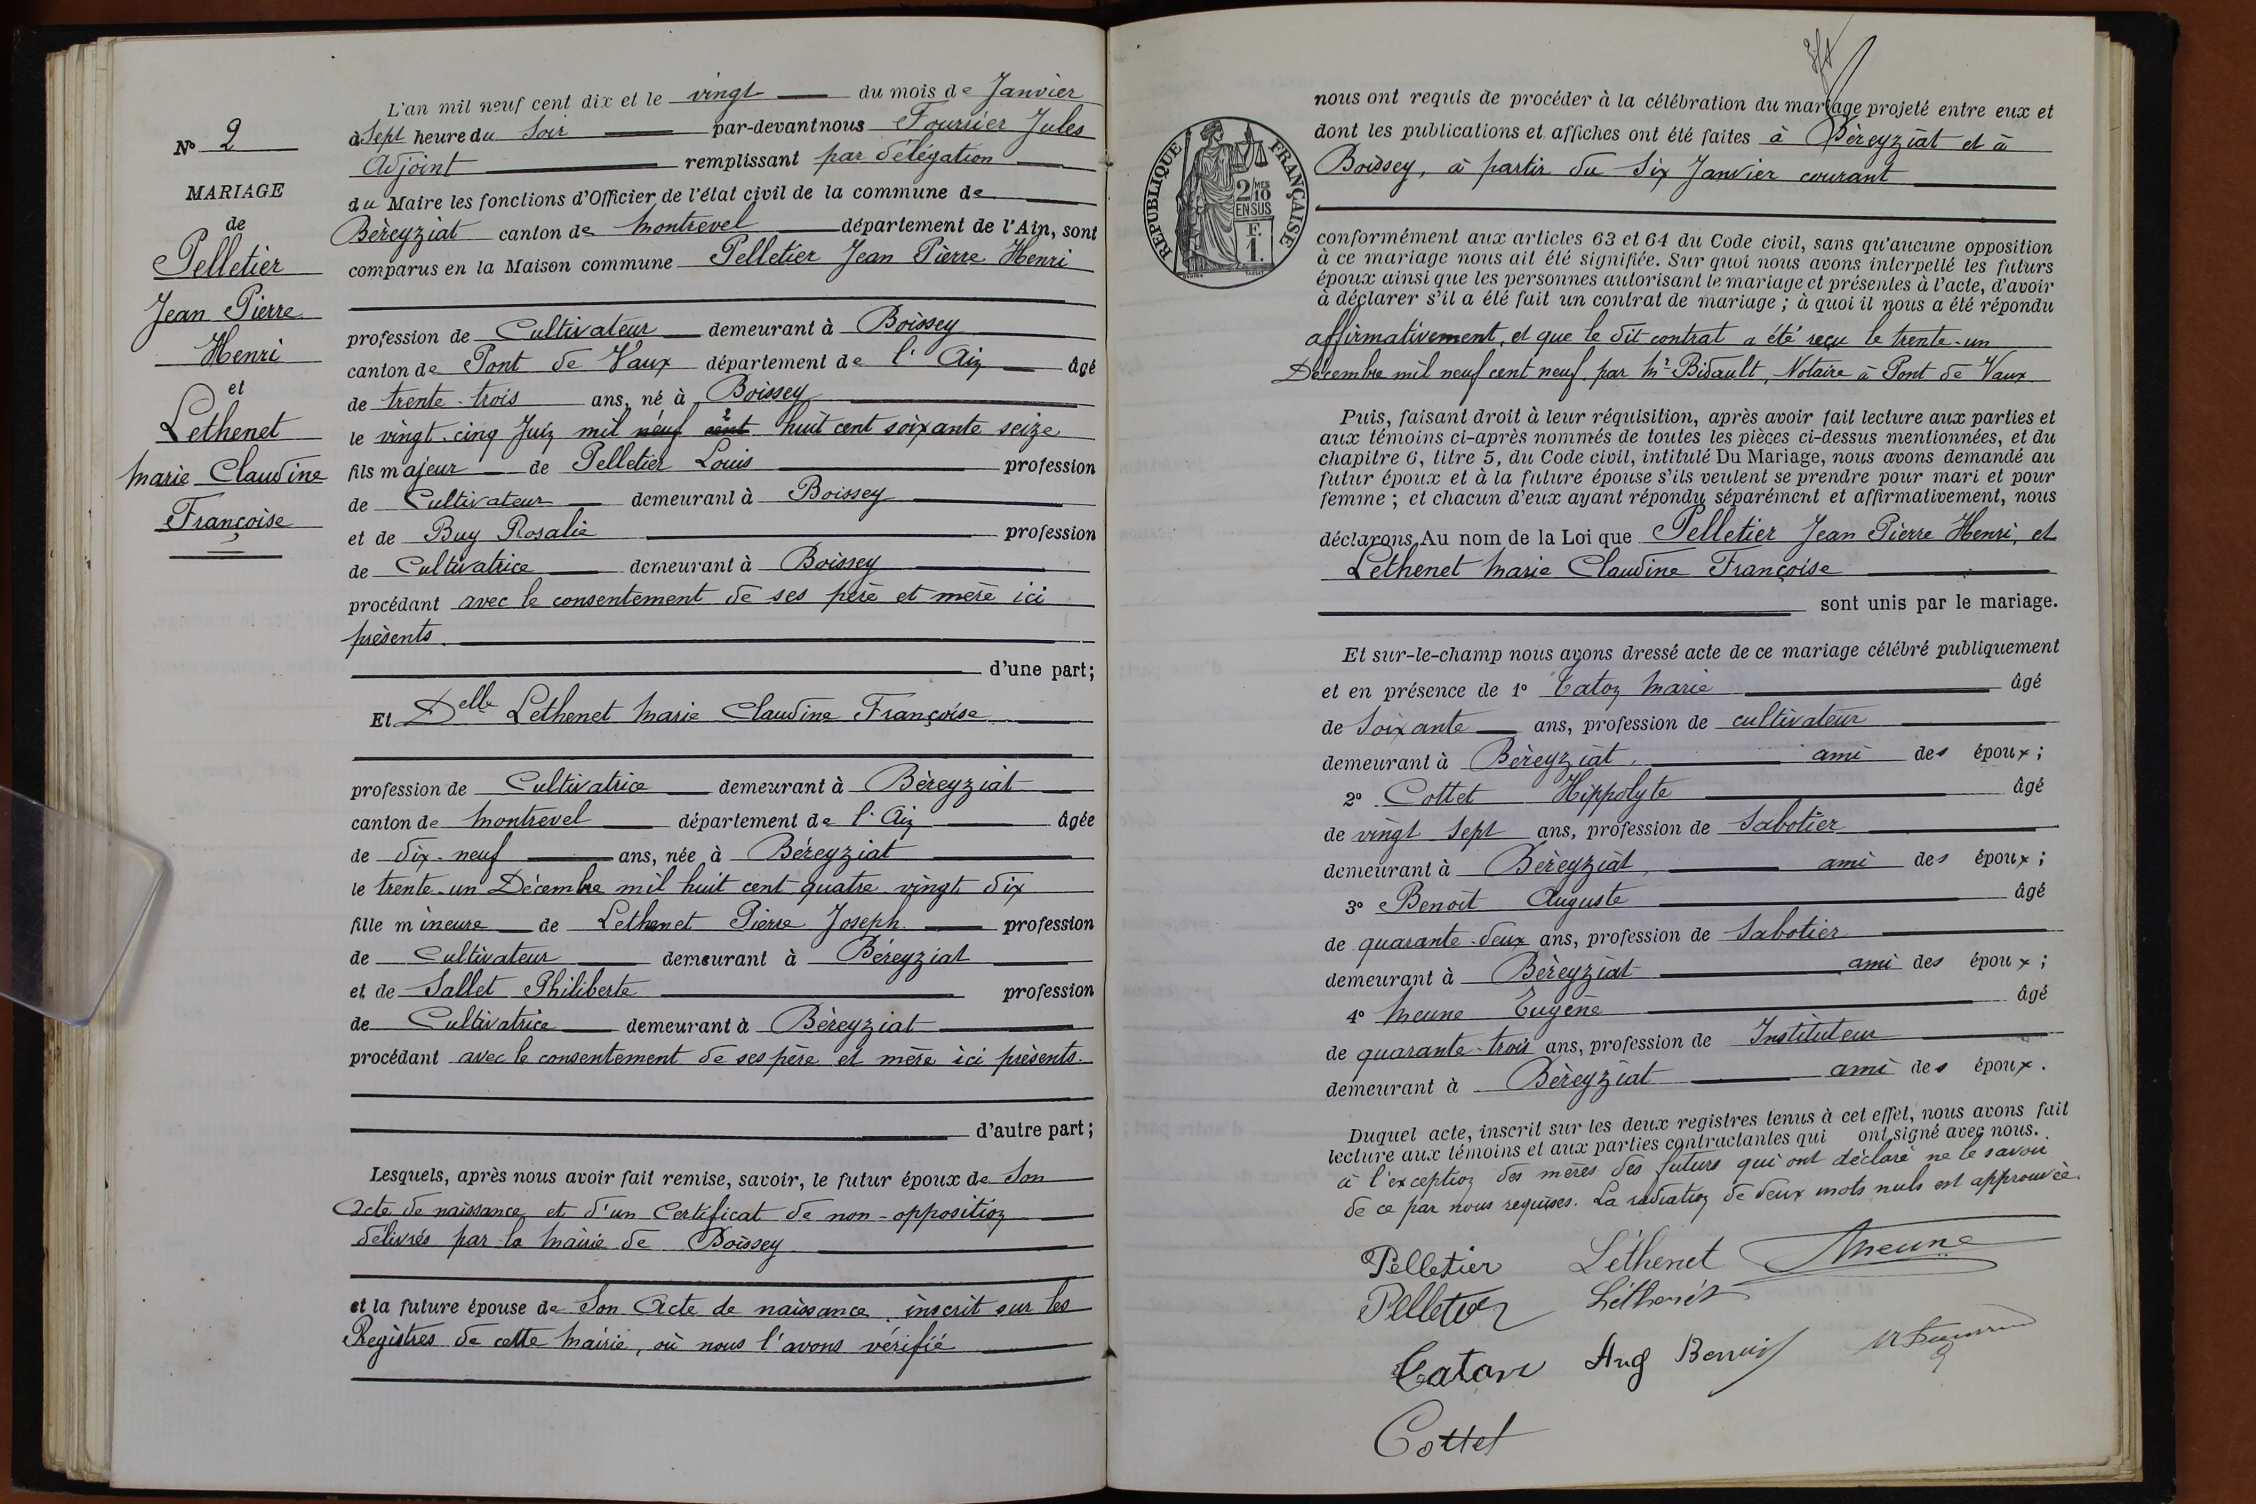 L'an mil neuf cent dix et le vingt du mois de Janvier
à Sept heure du Soir par-devant nous Fournier Jules
Adjoint remplissant par délégation
du Maire les fonctions d'Officier de l'état civil de la commune de
Béreyziat canton de Montrevel département de l'Ain, sont
comparus en la Maison commune Pelletier Jean Pierre Henri
profession de Cultivateur demeurant à Boissey
canton de Pont de Vaux département de l'Ain âgé
de trente-trois ans, né à Boissey
le vingt-cinq Juin mil neuf cent huit cent soixante seize
fils majeur de Pelletier Louis profession
de Cultivateur demeurant à Boissey
et de Buy Rosalie profession
de Cultivatrice demeurant à Boissey
procédant avec le consentement de ses père et mère ici
présents
d'une part;
Et Delle Lethenet Marie Claudine Françoise
profession de Cultivatrice demeurant à Béreyziat
canton de Montrevel département de l'Ain âgée
de dix-neuf ans, née à Béreyziat
le trente-un Décembre mil huit cent quatre vingt dix
fille mineure de Lethenet Pierre Joseph profession
de Cultivateur demeurant à Béreyziat
et de Sallet Philiberte profession
de Cultivatrice demeurant à Béreyziat
procédant avec le consentement de ses père et mère ici présents.
d'autre part;
Lesquels, après nous avoir fait remise, savoir, le futur époux de Son
Acte de naissance et d'un Certificat de non-opposition
délivrés par la Mairie de Boissey
et la future épouse de Son Acte de naissance, inscrit sur les
Registres de cette Mairie, où nous l'avons vérifié
No 2
MARIAGE
de
Pelletier
Jean Pierre
Henri
et
Lethenet
Marie Claudine
Françoise
RÉPUBLIQUE FRANÇAISE
2 MES
10
EN SUS
F.
1.
nous ont requis de procéder à la célébration du mariage projeté entre eux et
dont les publications et affiches ont été faites à Béreyziat et à
Boissey, à partir du Six Janvier courant
conformément aux articles 63 et 64 du Code civil, sans qu'aucune opposition
à ce mariage nous ait été signifiée. Sur quoi nous avons interpellé les futurs
époux ainsi que les personnes autorisant le mariage et présentes à l'acte, d'avoir
à déclarer s'il a été fait un contrat de mariage ; à quoi il nous a été répondu
affirmativement, et que le dit contrat a été reçu le trente-un
Décembre mil neuf cent neuf par Mr Bidault, Notaire à Pont de Vaux
Puis, faisant droit à leur réquisition, après avoir fait lecture aux parties et
aux témoins ci-après nommés de toutes les pièces ci-dessus mentionnées, et du
chapitre 6, titre 5, du Code civil, intitulé Du Mariage, nous avons demandé au
futur époux et à la future épouse s'ils veulent se prendre pour mari et pour
femme ; et chacun d'eux ayant répondu séparément et affirmativement, nous
déclarons Au nom de la Loi que Pelletier Jean Pierre Henri, et
Lethenet Marie Claudine Françoise
sont unis par le mariage.
Et sur-le-champ nous avons dressé acte de ce mariage célébré publiquement
et en présence de 1° Caton Marie âgé
de Soixante ans, profession de cultivateur
demeurant à Béreyziat, ami des époux ;
2° Cottet Hippolyte âgé
de vingt Sept ans, profession de Sabotier
demeurant à Béreyziat, ami des époux ;
3° Benoît Auguste âgé
de quarante-deux ans, profession de Sabotier
demeurant à Béreyziat ami des époux ;
4° Meune Eugène âgé
de quarante-trois ans, profession de Instituteur
demeurant à Béreyziat ami des époux.
Duquel acte, inscrit sur les deux registres tenus à cet effet, nous avons fait
lecture aux témoins et aux parties contractantes qui ont signé avec nous.
à l'exception des mères des futurs qui ont déclaré ne le savoir
de ce par nous requises. La radiation de deux mots nuls est approuvée.
Pelletier Léthenet Meune
Pelletier Léthenet
Caton Aug Benoit
Cottet